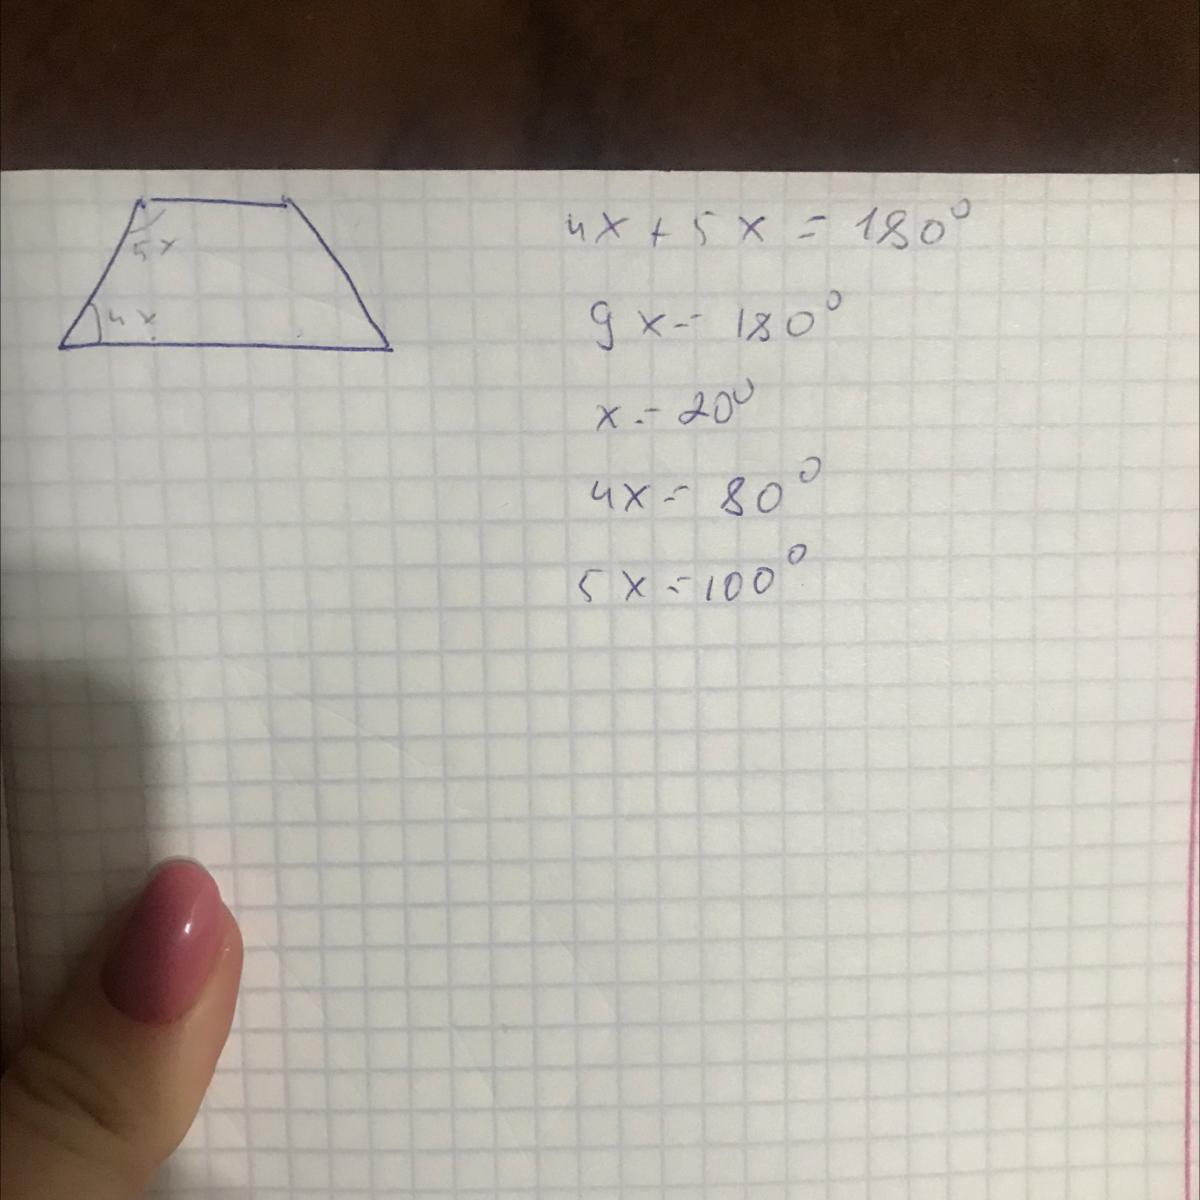 5x
4x
4x + 5x = 180°
9x = 180°
x = 20°
4x = 80°
5x = 100°